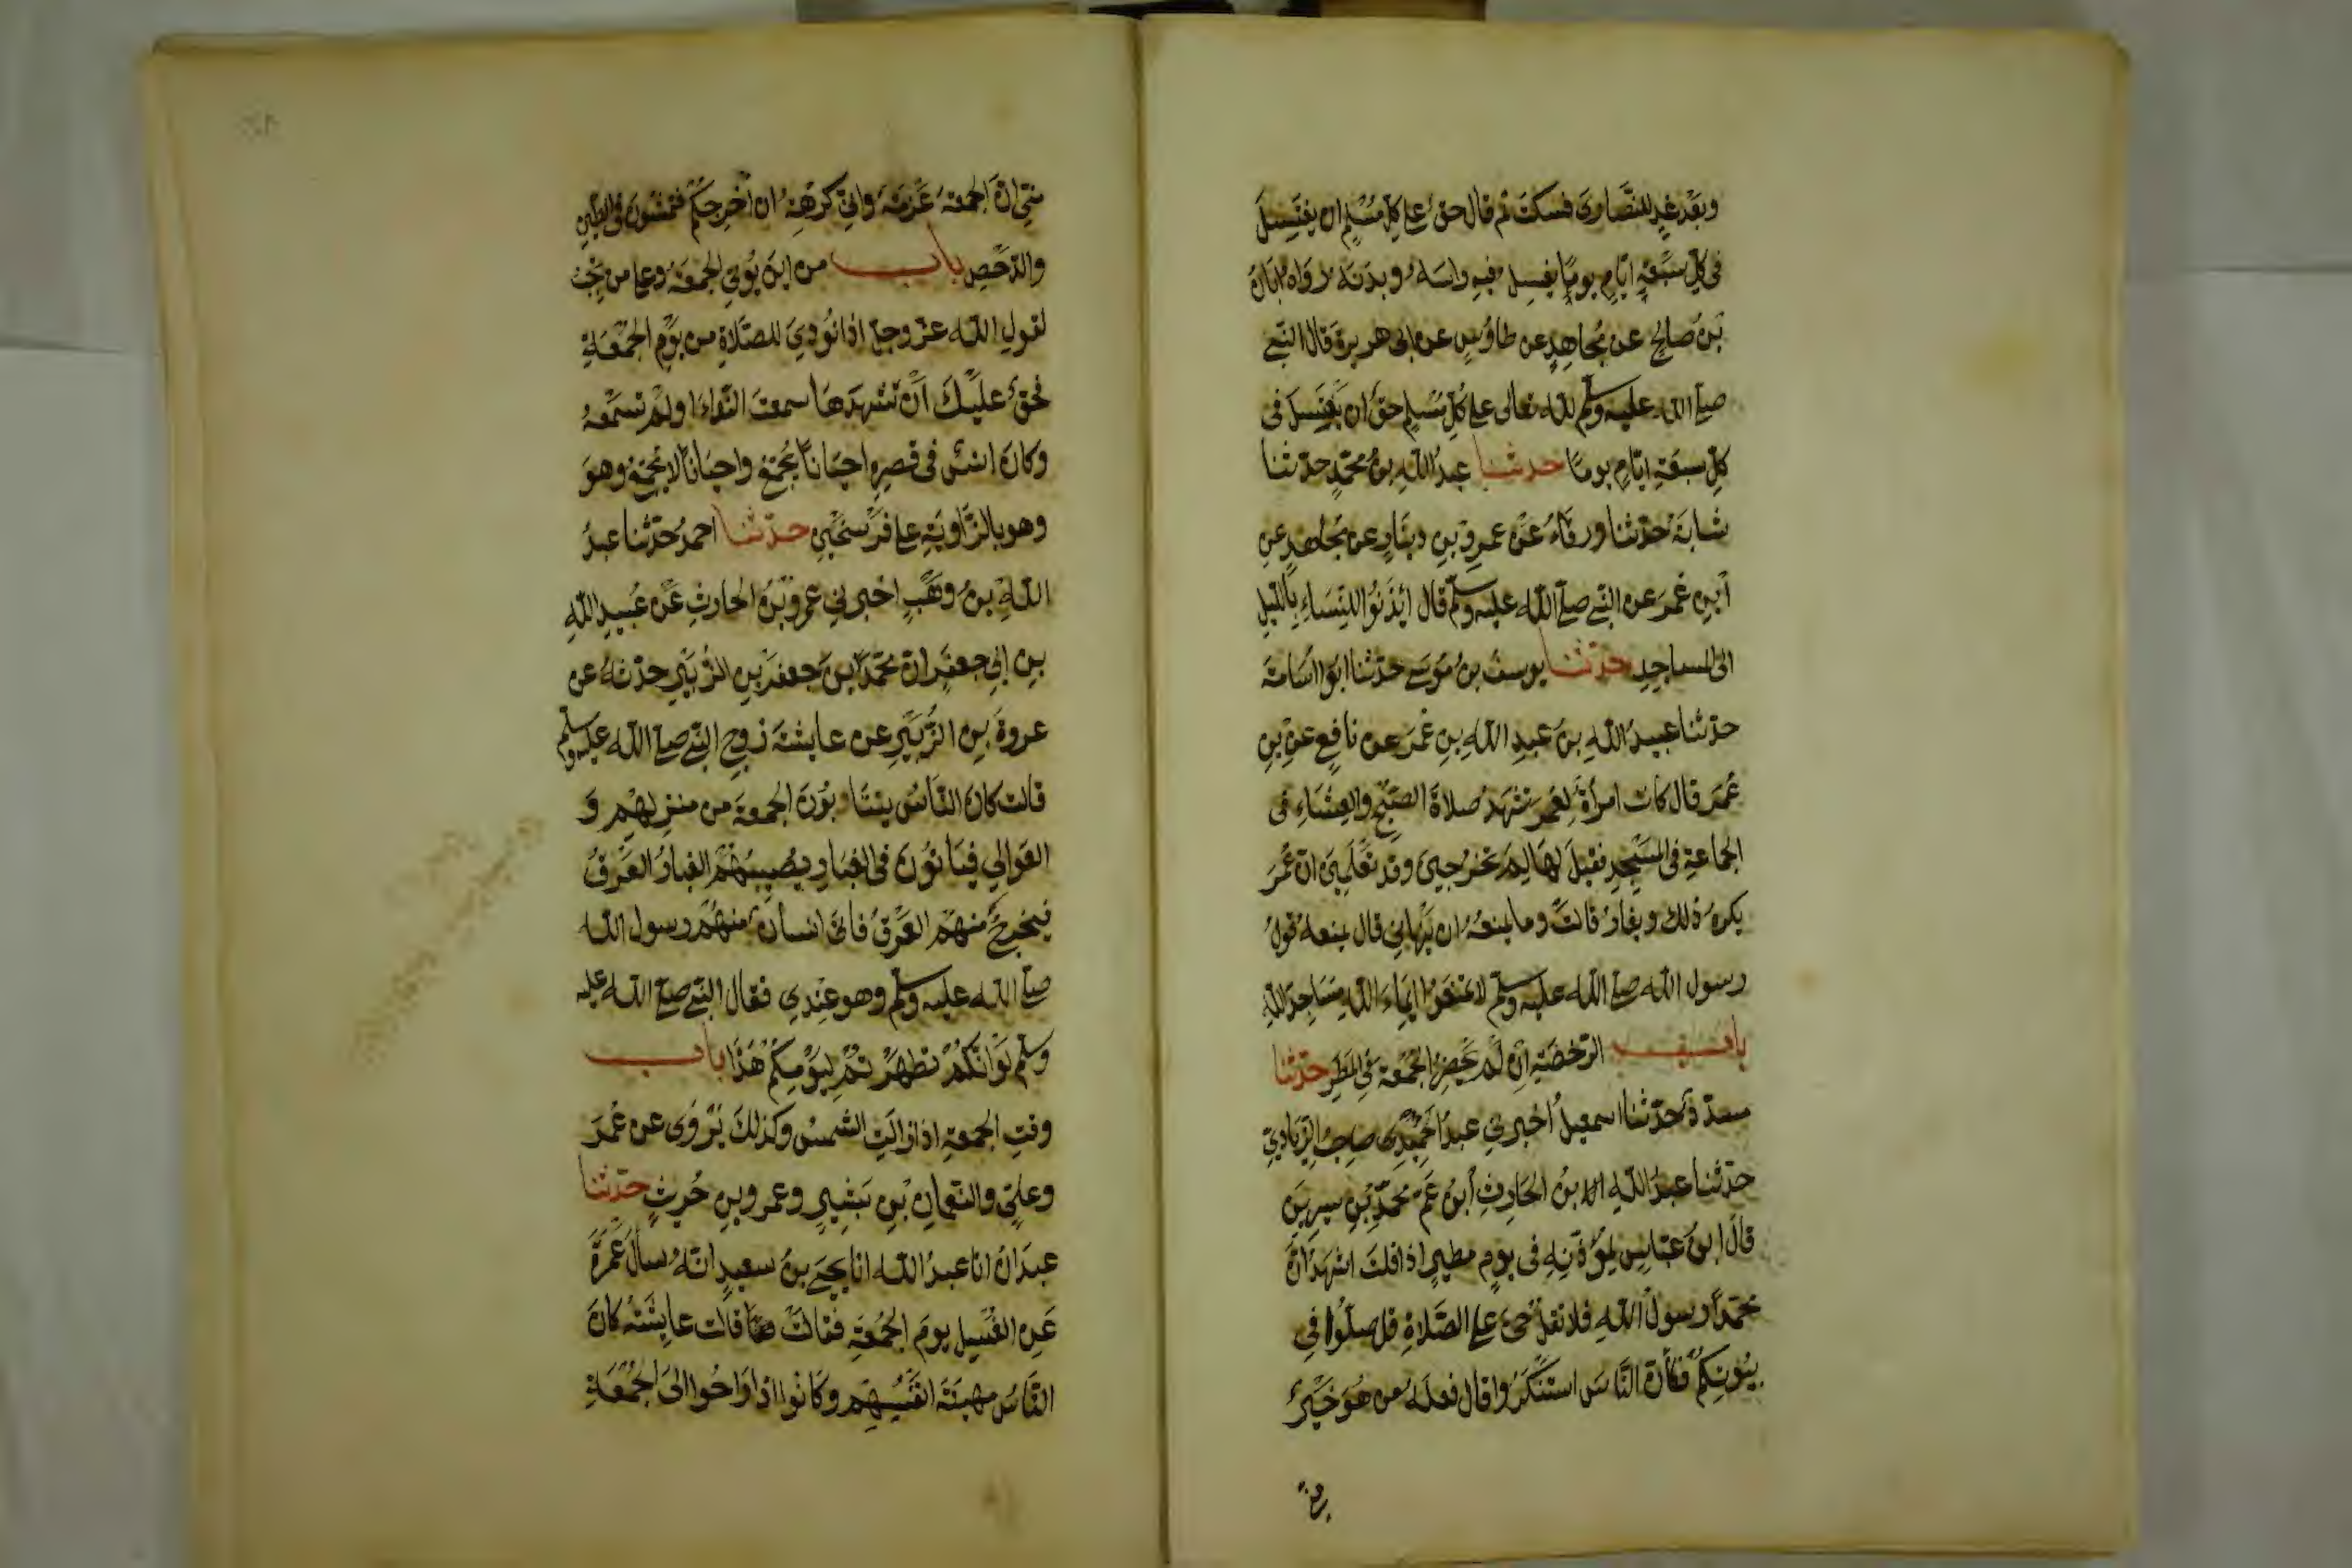 وبَعْدَ غدٍ للنَّصَارى فسكتَ ثم قال حقٌ على كلِّ مُسْلِمٍ ان يغتَسِلَ
فى كلِّ سَبْعَةِ ايّامٍ يومًا يغسِل فيهِ راسَهُ وبدَنَه رَوَاه اَبَانُ
بْنُ صَالحٍ عن مُجاهِدٍ عن طاوُسٍ عن ابى هريرة قال النّبي
صلى الله عليه وسلم لله تعالى على كُلِّ مُسْلمٍ حقٌ ان يَغْتَسِلَ فى
كلِّ سبعةِ ايّامٍ يومًا حدثنا عبدُ اللّهِ بنُ محمّدٍ حدّثنا
شبابَةُ حدّثنا ورقاءُ عَنْ عمرِو بنِ دينَارٍ عن مُجَاهدٍ عنِ
اُبنِ عُمَرَ عن النّبي صلّى اللّه عليه وسلّم قال ائذَنُوا للنِّسَاءِ بِاللّيلِ
الى المساجِدِ حدّثنا يوسفُ بنُ مُوسَى حدّثنا ابُو اُسَامَةَ
حدّثنا عبيدُ اللّهِ بنُ عبدِ اللّهِ بنِ عُمَرَ عن نافعٍ عنِ بنِ
عُمَرَ قال كانت امرأةٌ لِعُمَرَ تشْهَدُ صلاةَ الصّبْحِ والعِشَاءِ فى
الجماعةِ فى المسْجِدِ فقيلَ لهَا لِمَ تخْرُجينَ وقد تَعْلَمِينَ انّ عُمَرَ
يكره ذلك ويغارُ قالتْ وما يمنعُهُ ان يَنْهَاني قال يمنعه قولُ
رسول اللّه صلى اللّه عليه وسلم لا تمْنَعُوا اِمَاءَ اللّهِ مسَاجِدَ اللّهِ
باب الرّخصَةِ اِن لَمْ يَحْضُرِ الجُمُعَةَ فى المطَرِ حدّثنا
مسدّدٌ حدّثنا اسمعيلُ اخبرني عبدُ الحَمِيْدِ صاحِبُ الزِّيَاديّ
حدّثنا عبدُ اللّهِ بنُ الحَارِثِ اُبنُ عَمِّ محمّدِ بْنِ سيرينَ
قالَ ابنُ عبّاسٍ لِمؤَذّنِهِ فى يومٍ مطيرٍ اذا قلتَ اشهَدُ انَّ
محمّدًا رسولُ اللّهِ فلا تقلْ حىّ على الصَّلاةِ قل صلّوُا فى
بيُوتِكُمْ فكأنّ النَّاسَ اسْتَنْكَرُوا قال فعلَه من هُوَ خَيْرٌ
منّي انّ الجمعةَ عَزمَةٌ وانّي كَرِهْتُ ان اُخْرِجَكُمْ فتمشُونَ فى الطّينِ
والدّحَضِ باب من اينَ يُؤتى الجمعَةُ وعلى من تجبُ
لقولِ اللّه عزّ وجلّ اذا نُودِيَ للصّلاةِ من يَوْمِ الجُمُعَةِ
فحَقٌّ عليْكَ اَنْ تشْهدَهَا سمعتَ النّدَاءَ او لم تسمَعْهُ
وكانَ انسٌ فى قصرِهِ احيَانًا يُجَمّعُ واحيَانًا لا يُجمّعُ وهوَ
وهو بالزّاويَةِ على فَرْسَخَيْنِ حدّثنا احمدُ حدّثنا عبدُ
اللّهِ بنُ وَهْبٍ اخبرني عمرُو بْنُ الحارثِ عَنْ عُبَيدِ اللّهِ
بنِ ابِي جعفرٍ انّ محمّدَ ابنَ جعفرِ بنِ الزُّبَيْرِ حدّثهُ عن
عروةَ بنِ الزُّبَيْرِ عن عايشةَ زوجِ النّبي صلى اللّه عليه وسلم
قالت كانَ النّاسُ ينتَابُونَ الجمعةَ من منزلِهِمْ وَ
العَوَالِي فيَأتُونَ فى الغبَارِ يُصِيبُهُمْ الغبارُ والعَرَقُ
فيخرجُ منهم العَرَقُ فاتى انسانٌ منهُمْ رسول اللّه
صلى اللّه عليه وسلم وهو عِنْدِي فقال النّبي صلى اللّه عليه
وسلم لَوْ انّكُمْ تطَهَّرْتُمْ لِيَوْمِكُمْ هَذَا باب
وقتِ الجمعةِ اذا زالَتِ الشّمسُ وكذلكَ يُرْوَى عن عُمَرَ
وعليٍّ والنّعمانِ بْنِ بَشِيرٍ وعمرِو بنِ حُريثٍ حدّثنا
عبدَانُ انا عبدُ اللّه انا يحيَى بنُ سعيدٍ انّهُ سألَ عَمْرَةَ
عَنِ الغُسْلِ يومَ الجُمُعَةِ فقالتْ قالت عايشَةُ كانَ
النّاسُ مهَنَةَ انْفُسِهِم وكَانُوا اذا رَاحُوا الىَ الجُمُعَةِ